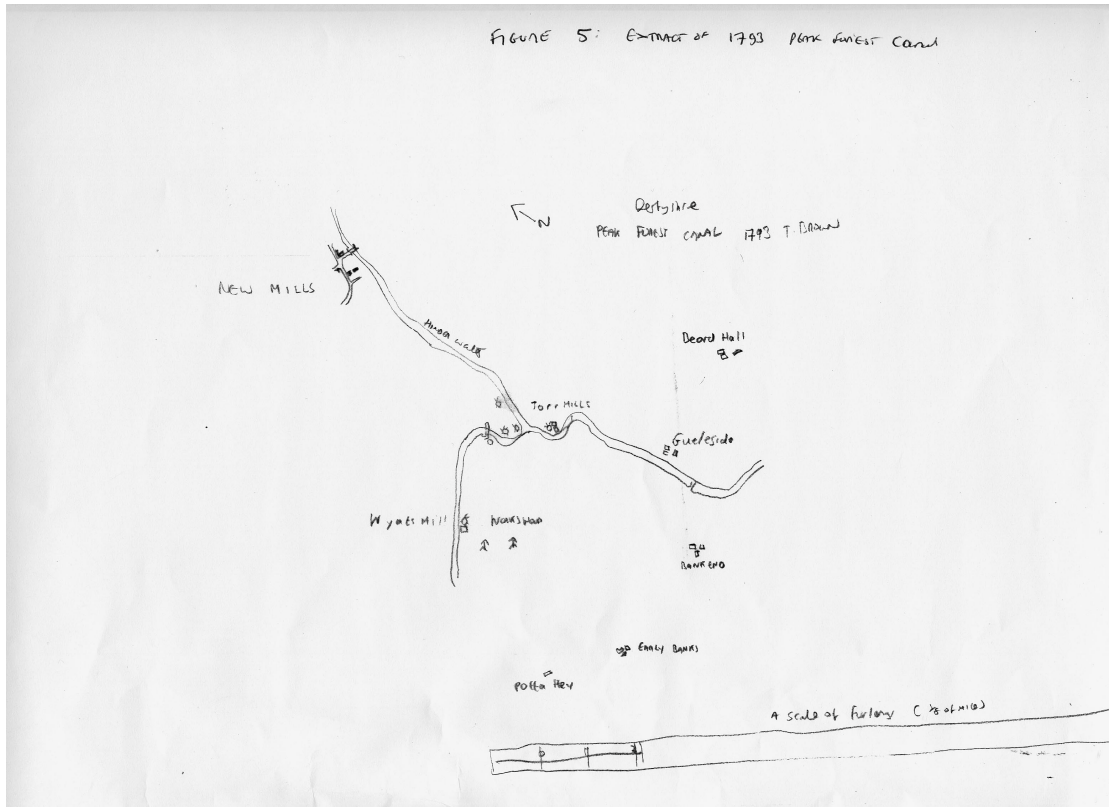 FIGURE 5: EXTRACT OF 1793 PEAK FOREST Canal
N
Derbyshire
PEAK FOREST CANAL 1793 T. BROWN
NEW MILLS
Beard Hall
TORR MILLS
Wyats Mill
BANK END
EARLY BANKS
POTTA HEY
A scale of Furlong (1/8 of MILE)